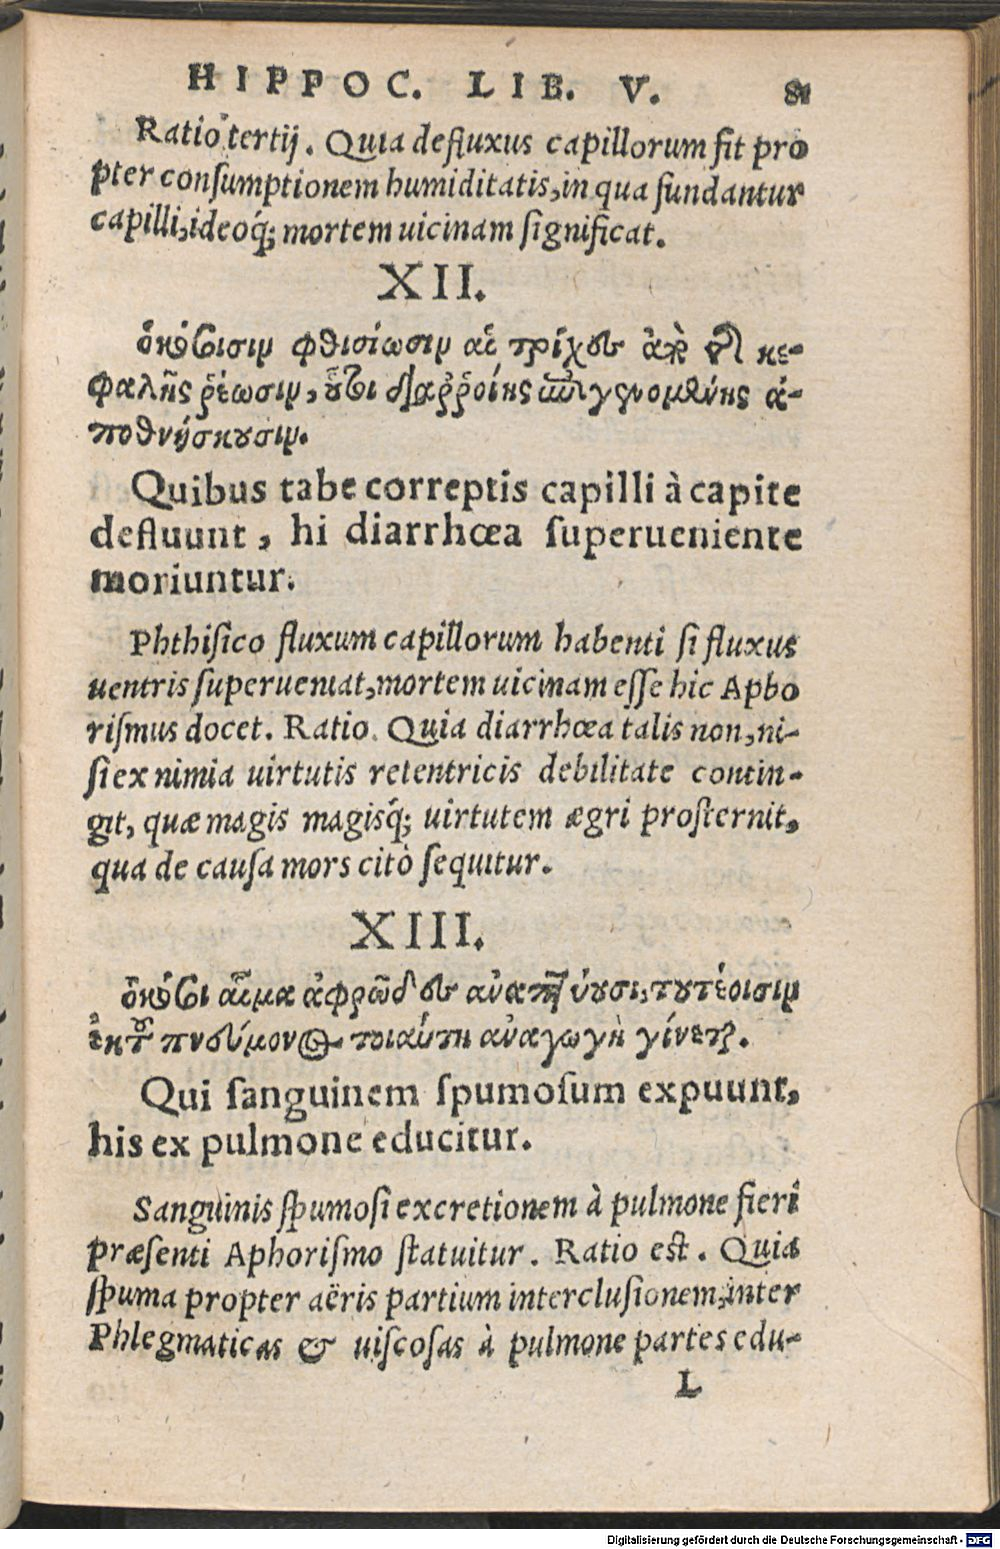 HIPPOC. LIB. V. 81
Ratio tertij. Quia defluxus capillorum fit pro
pter consumptionem humiditatis, in qua fundantur
capilli, ideoq́; mortem uicinam significat.
XII.
ὁκόσοισιν φθισίωσιν αἱ τρίχες ἀπὸ τῆς κε-
φαλῆς ῥέωσιν, οὗτοι διαῤῥοίης ἐπιγενομένης ἀ-
ποθνήσκουσιν.
Quibus tabe correptis capilli à capite
defluunt, hi diarrhœa superueniente
moriuntur.
Phthisico fluxum capillorum habenti si fluxus
uentris superueniat, mortem uicinam esse hic Apho
rismus docet. Ratio. Quia diarrhœa talis non, ni-
si ex nimia uirtutis retentricis debilitate contin-
git, quæ magis magisq́; uirtutem ægri prosternit,
qua de causa mors citò sequitur.
XIII.
ὁκόσοι αἷμα ἀφρῶδες ἀναπτύουσι, τουτέοισιν
ἐκ τοῦ πνεύμονος τοιαύτη ἀναγωγὴ γίνεται.
Qui sanguinem spumosum expuunt,
his ex pulmone educitur.
Sanguinis spumosi excretionem à pulmone fieri
præsenti Aphorismo statuitur. Ratio est. Quia
spuma propter aëris partium interclusionem, inter
Phlegmaticas & uiscosas à pulmone partes edu-
L
Digitalisierung gefördert durch die Deutsche Forschungsgemeinschaft - DFG